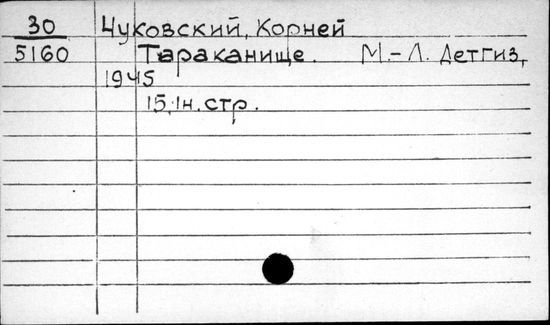 30 Чуковский, Корней
5160 Тараканище. М.-Л. Детгиз,
1945
15,1н. стр.